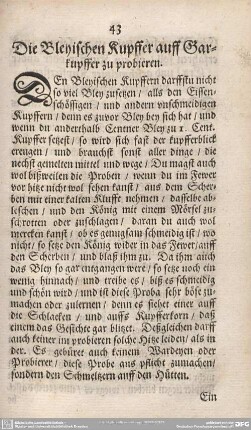 43
Die Bleyischen Kupffer auff Gar-
kupffer zu probieren.
DEn Bleyischen Kupffern darffstu nicht
so viel Bley zusetzen / alls den Eissen-
schössigen / und andern unschmeidigen
Kupffern / denn es zuvor Bley bey sich hat / und
wenn du anderthalb Centner Bley zu 1. Cent.
Kupffer setzest / so wird sich fast der kupfferblick
ereugen / und brauchst sonst aller dinge / die
nechst gemelten mittel und wege / Du magst auch
wol bißweilen die Proben / wenn du im Fewer
vor hitze nicht wol sehen kanst / aus dem Scher-
ben mit einer kalten Klufft nehmen / dasselbe ab-
lischen / und den König mit einem Mörsel zu-
schroten oder zuschlagen / daran du auch wol
mercken kanst / ob es genugsam schmeidig ist / wo
nicht / so setze den König wider in das Fewer / auff
den Scherben / und blaß ihm zu. Da ihm aich
das Bley so gar entgangen were / so setze noch ein
wenig hinnach / und treibe es / biß es schmeidig
und schön wird / und ist diese Proba sehr böse zu-
machen oder zulernen / denn es siehet einer auff
die Schlacken / und auffs Kupfferkorn / daß
einem das Gesichte gar blitzet. Deßgleichen darff
auch keiner im probieren solche Hitz leiden / als in
der. Es gebüret auch keinem Wardeyen oder
Probierer / diese Proba aus pflicht zumachen /
sondern den Schmeltzern auff den Hütten.
Ein